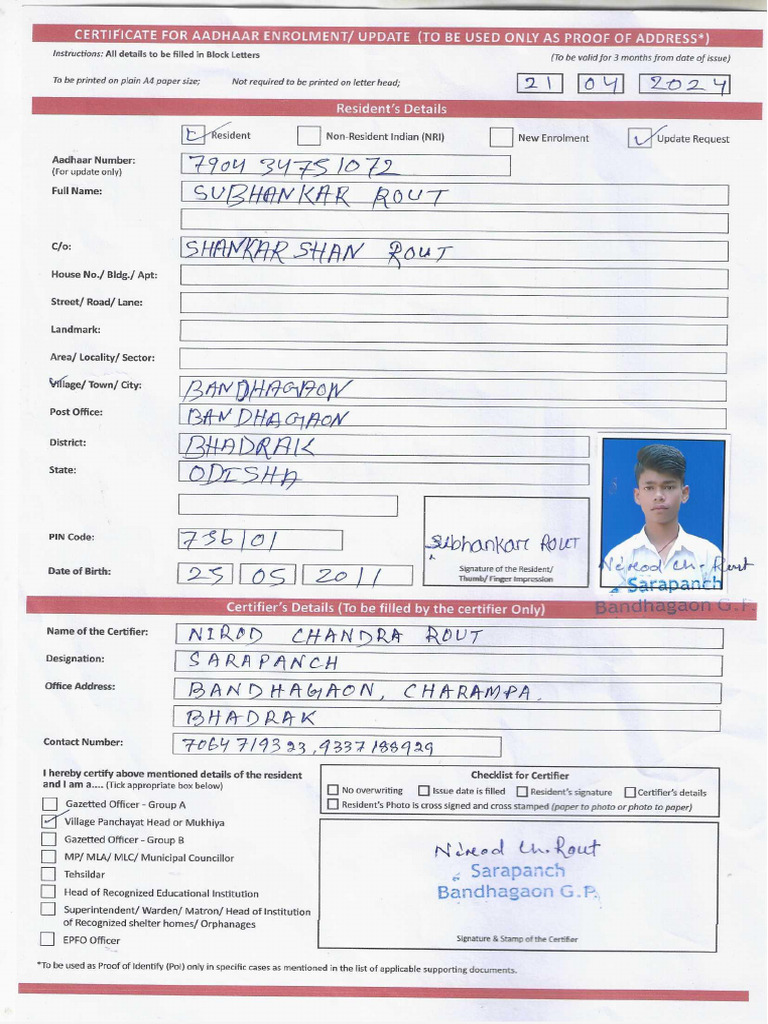 CERTIFICATE FOR AADHAAR ENROLMENT/ UPDATE (TO BE USED ONLY AS PROOF OF ADDRESS*)
Instructions: All details to be filled in Block Letters (To be valid for 3 months from date of issue)
To be printed on plain A4 paper size; Not required to be printed on letter head; 21 04 2024
Resident's Details
Resident Non-Resident Indian (NRI) New Enrolment Update Request
Aadhaar Number: 7904 34751072
(For update only)
Full Name: SUBHANKAR ROUT
C/o: SHANKARSHAN ROUT
House No./ Bldg./ Apt:
Street/ Road/ Lane:
Landmark:
Area/ Locality/ Sector:
Village/ Town/ City: BANDHAGAON
Post Office: BANDHAGAON
District: BHADRAK
State: ODISHA
PIN Code: 756101
Subhankar ROUT
Signature of the Resident/
Thumb/ Finger Impression
Date of Birth: 25 05 2011
Nirod Ch. Rout
Sarapanch
Bandhagaon G.P.
Certifier's Details (To be filled by the certifier Only)
Name of the Certifier: NIROD CHANDRA ROUT
Designation: SARAPANCH
Office Address: BANDHAGAON, CHARAMPA.
BHADRAK
Contact Number: 7064719323, 9337188929
I hereby certify above mentioned details of the resident
and I am a.... (Tick appropriate box below)
Gazetted Officer - Group A
Village Panchayat Head or Mukhiya
Gazetted Officer - Group B
MP/ MLA/ MLC/ Municipal Councillor
Tehsildar
Head of Recognized Educational Institution
Superintendent/ Warden/ Matron/ Head of Institution
of Recognized shelter homes/ Orphanages
EPFO Officer
Checklist for Certifier
No overwriting Issue date is filled Resident's signature Certifier's details
Resident's Photo is cross signed and cross stamped (paper to photo or photo to paper)
Nirod Ch. Rout
Sarapanch
Bandhagaon G.P.
Signature & Stamp of the Certifier
*To be used as Proof of Identify (PoI) only in specific cases as mentioned in the list of applicable supporting documents.